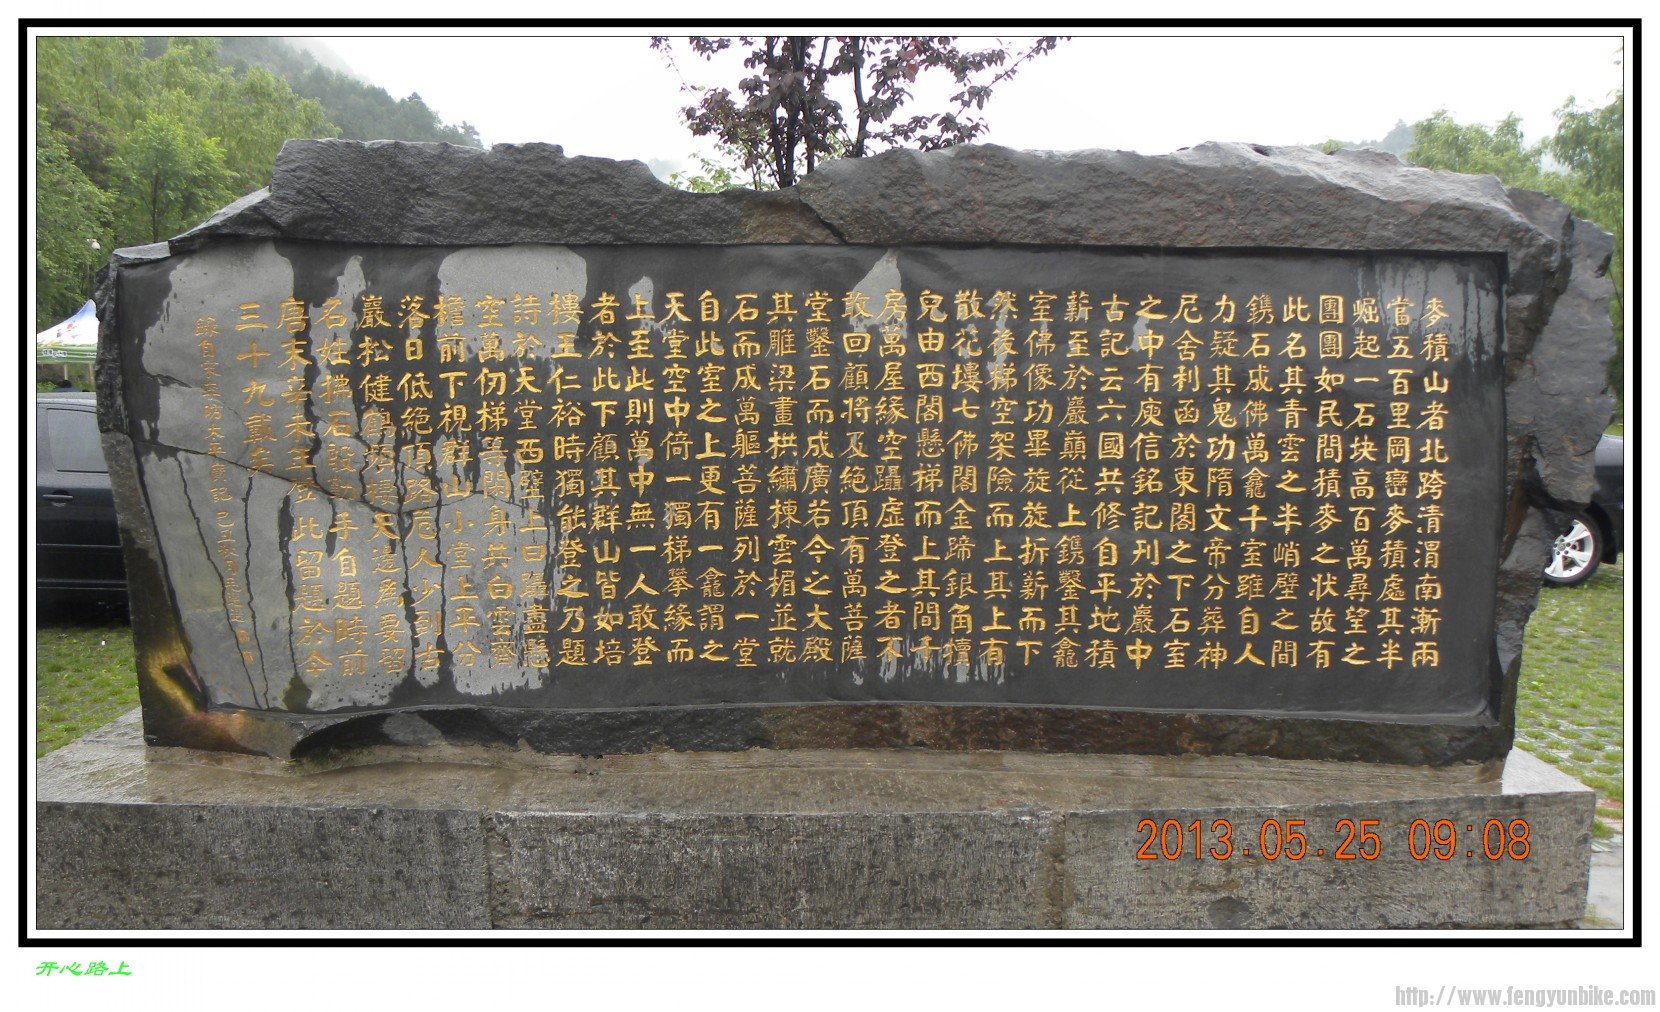 麥積山者北跨清渭南漸兩
當五百里岡巒麥積處其半
崛起一石块高百萬尋望之
團團如民間積麥之状故有
此名其青雲之半峭壁之間
鐫石成佛萬龕千室雖自人
力疑其鬼功隋文帝分葬神
尼舍利函於東閣之下石室
之中有庾信銘記刋於巖中
古記云六國共修自平地積
薪至於巖巔從上鐫鑿其龕
室佛像功畢旋旋折薪而下
然後梯空架險而上其上有
散花塿七佛閣金蹄銀角犢
兒由西閣懸梯而上其間千
房萬屋緣空躡虛登之者不
敢回顧將及絕頂有萬菩薩
堂鑿石而成廣若今之大殿
其雕梁畫栱繡棟雲楣並就
石而成萬軀菩薩列於一堂
自此室之上更有一龕謂之
天堂空中倚一獨梯攀緣而
上至此則萬中無一人敢登
者於此下顧其群山皆如培
樓王仁裕時獨能登之乃題
詩於天堂西壁上曰躡盡懸
空萬仞梯等閑身共白雲齊
檐前下視群山小堂上平分
落日低絕頂路危人少到古
巖松健鶴頻棲天邊為要留
名姓拂石殷勤手自題時前
唐末辛未年登此留題於今
三十九載矣
録自宋李昉太平廣記 己丑
2013.05.25 09:08
开心路上
http://www.fengyunbike.com